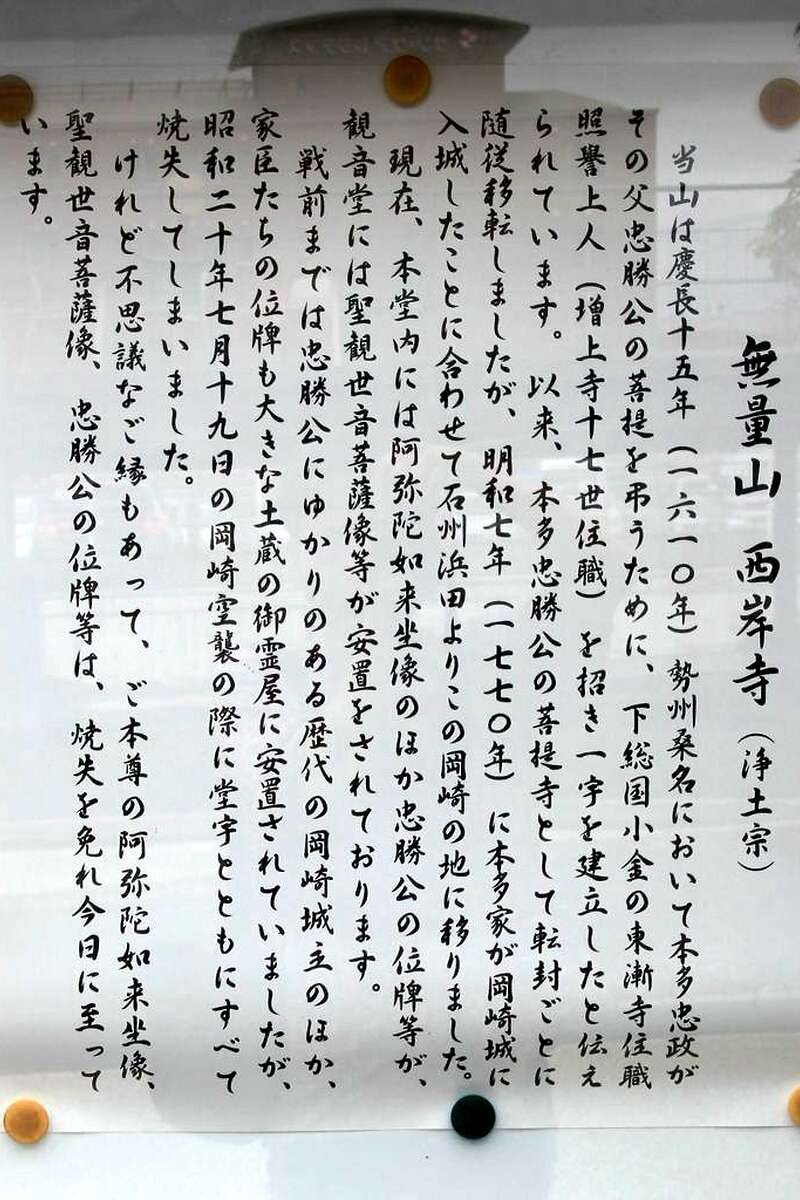 無量山　西岸寺（浄土宗）
当山は慶長十五年（一六一〇年）勢州桑名において本多忠政が
その父忠勝公の菩提を弔うために、下総国小金の東漸寺住職
照誉上人（増上寺十七世住職）を招き一宇を建立したと伝え
られています。以来、本多忠勝公の菩提寺として転封ごとに
随従移転しましたが、明和七年（一七七〇年）に本多家が岡崎城に
入城したことに合わせて石州浜田よりこの岡崎の地に移りました。
現在、本堂内には阿弥陀如来坐像のほか忠勝公の位牌等が、
観音堂には聖観世音菩薩像等が安置をされております。
戦前までは忠勝公にゆかりのある歴代の岡崎城主のほか、
家臣たちの位牌も大きな土蔵の御霊屋に安置されていましたが、
昭和二十年七月十九日の岡崎空襲の際に堂宇とともにすべて
焼失してしまいました。
けれど不思議なご縁もあって、ご本尊の阿弥陀如来坐像、
聖観世音菩薩像、忠勝公の位牌等は、焼失を免れ今日に至って
います。